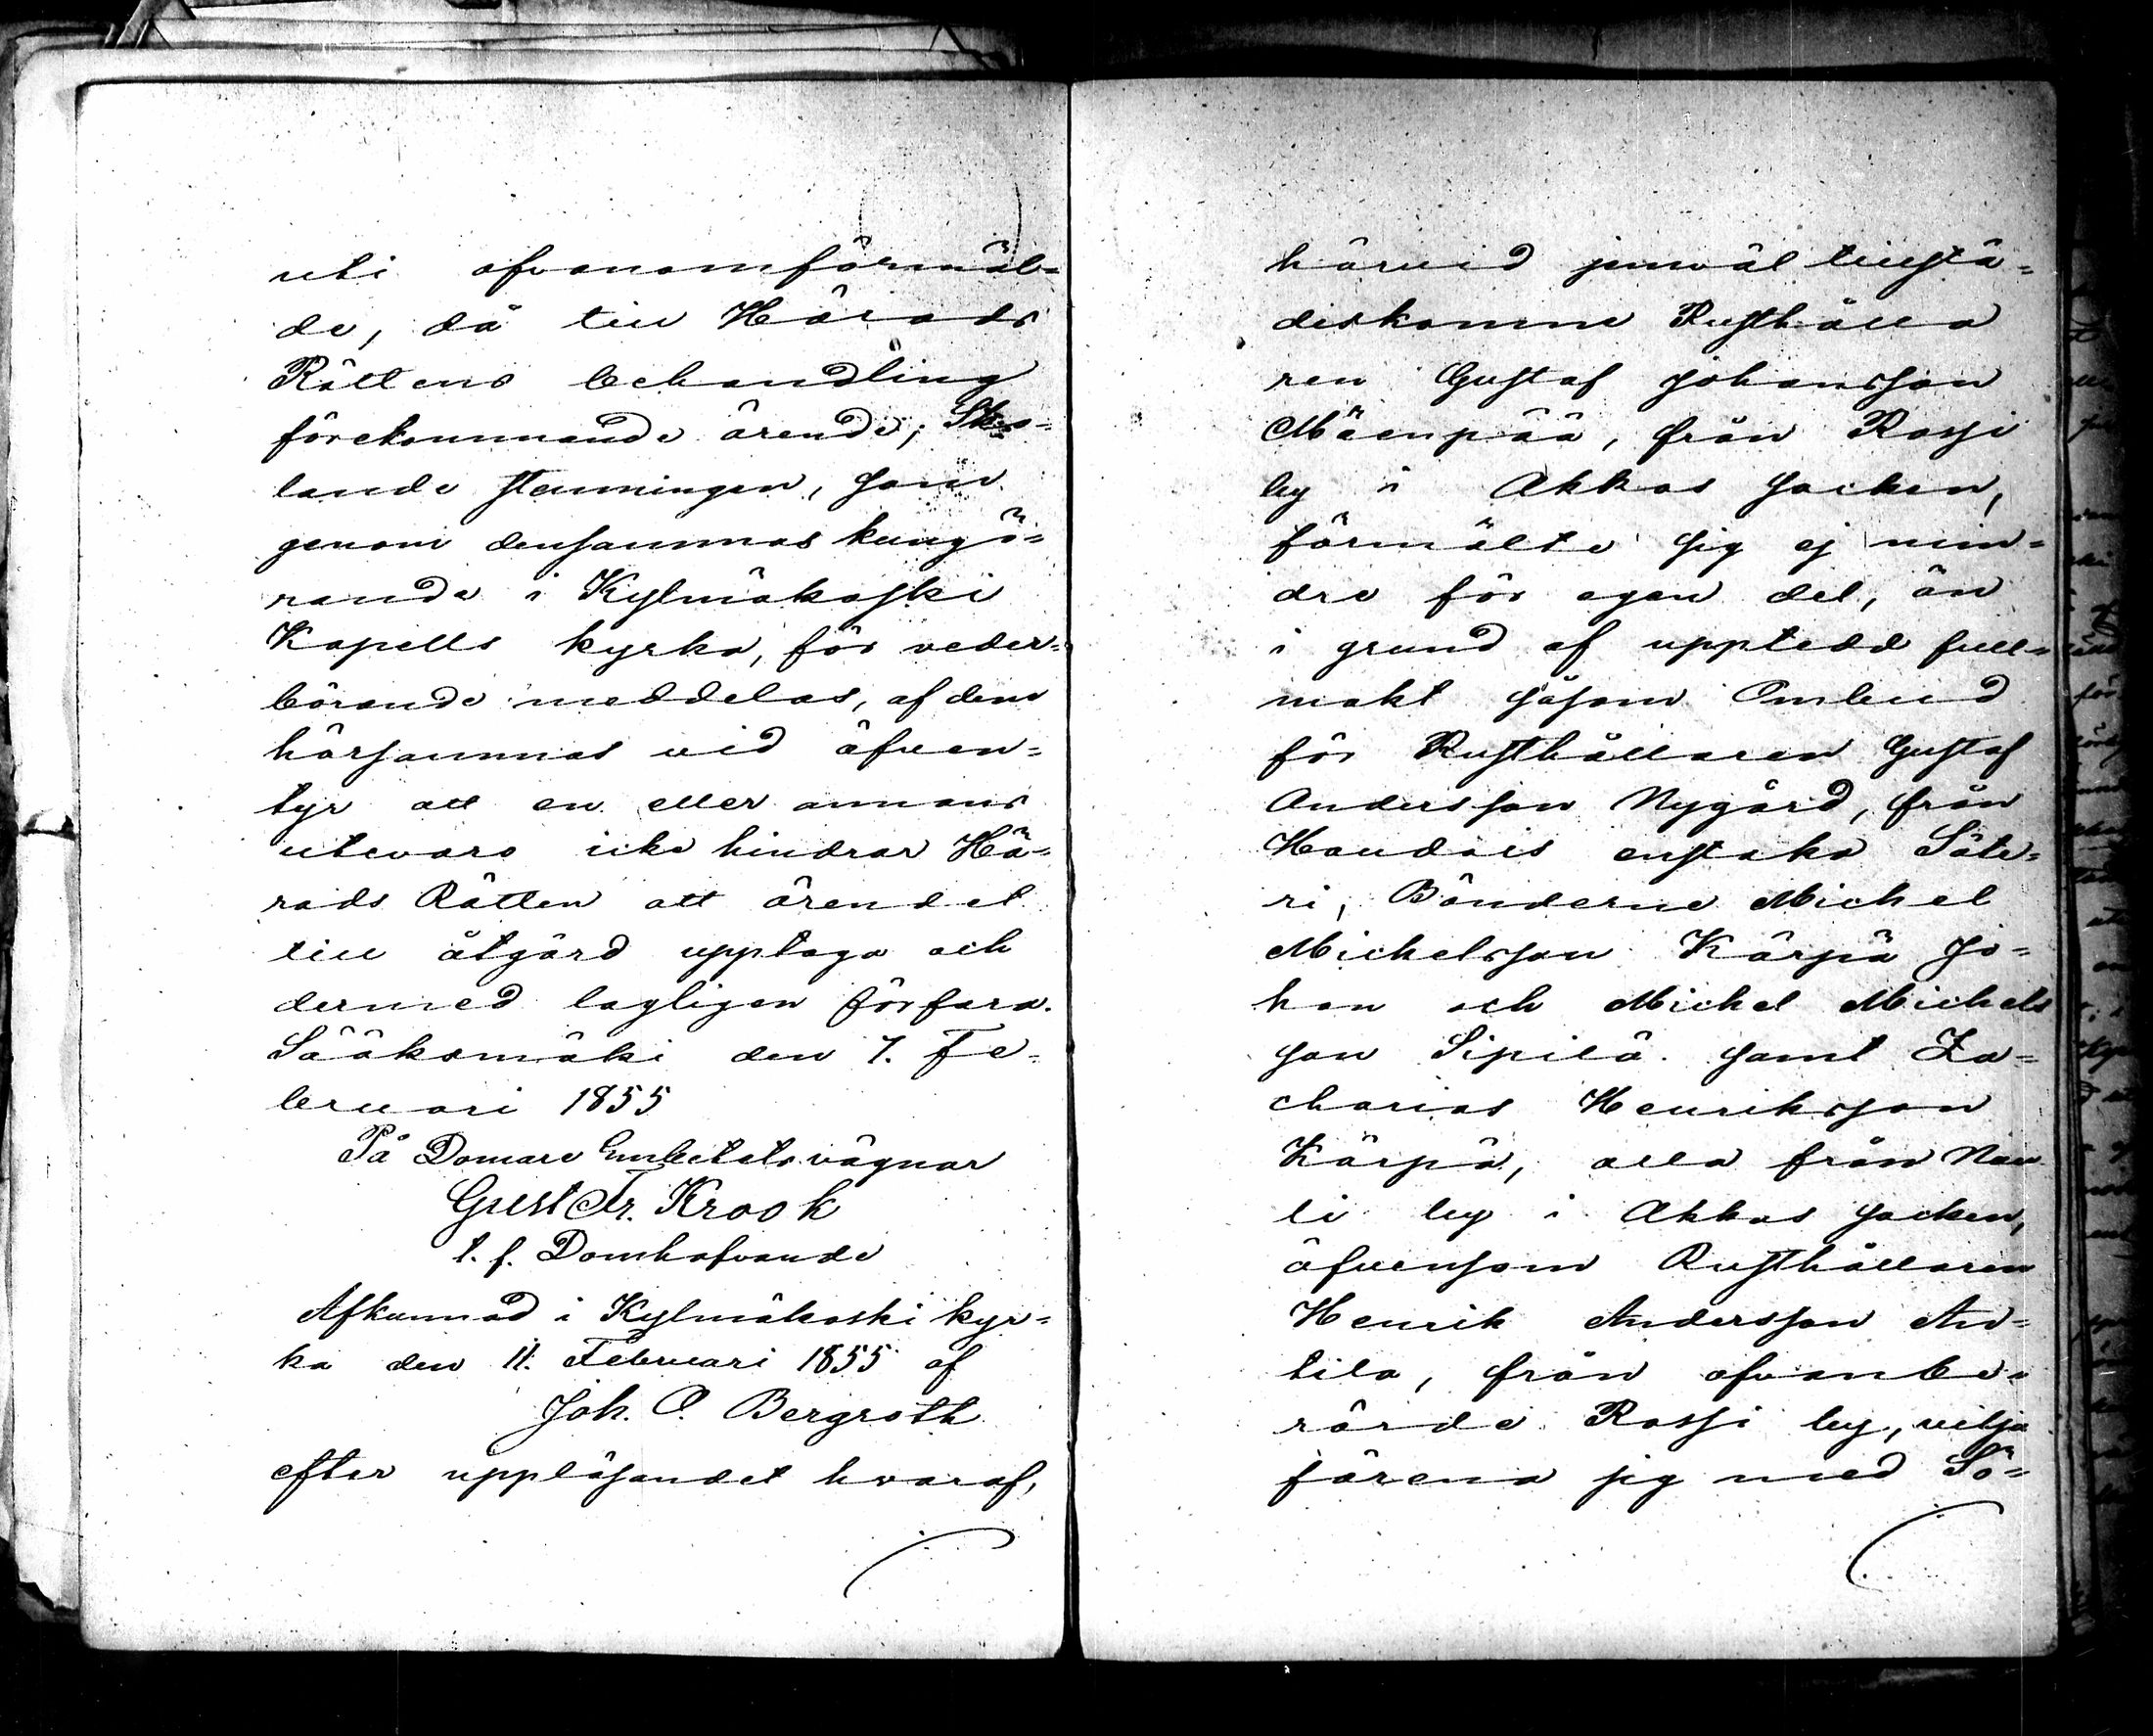 uti ofvanomförmäl-
de, då till Härads
Rättens behandling
förekommande ärende; Sko-
lande stämningen, som
genom densammas kungö-
rande i Kylmäkoski
Kapells kyrka, för veder-
börande meddelas, af dem
hörsammas vid äfven-
tyr att en eller annans
utevaro icke hindrar Hä-
rads Rätten att ärendet
till åtgärd upptaga och
dermed lagligen förfara.
Sääksmäki den 7. Fe-
bruari 1855
På Domare Embetets vägnar
Gust Fr. Krook
t. f. Domhafvande
Afkunnad i Kylmäkoski kyr-
ka den 11. Februari 1855 af
Joh. O. Bergroth
efter uppläsandet hvaraf,
härvid jemväl tillstä-
deskomne Rusthålla
ren Gustaf Johansson
Mäenpää, från Rossi
by i Akkas socken,
förmälte sig ej min-
dre för egen del, än
i grund af uppledd full-
makt såsom Ombud
för Rusthållaren Gustaf
Andersson Nygård, från
Haudois enstaka Säte-
ri, Bönderne Michel
Michelsson Kärpä Jo-
han och Michel Michels
son Sipilä samt Za-
charias Henriksson
Kärpä, alla från Nau
li by i Akkas socken,
äfvensom Rusthållaren
Henrik Andersson An-
tila, från ofvanbe-
rörde Rossi by, vilja
förena sig med Sö-